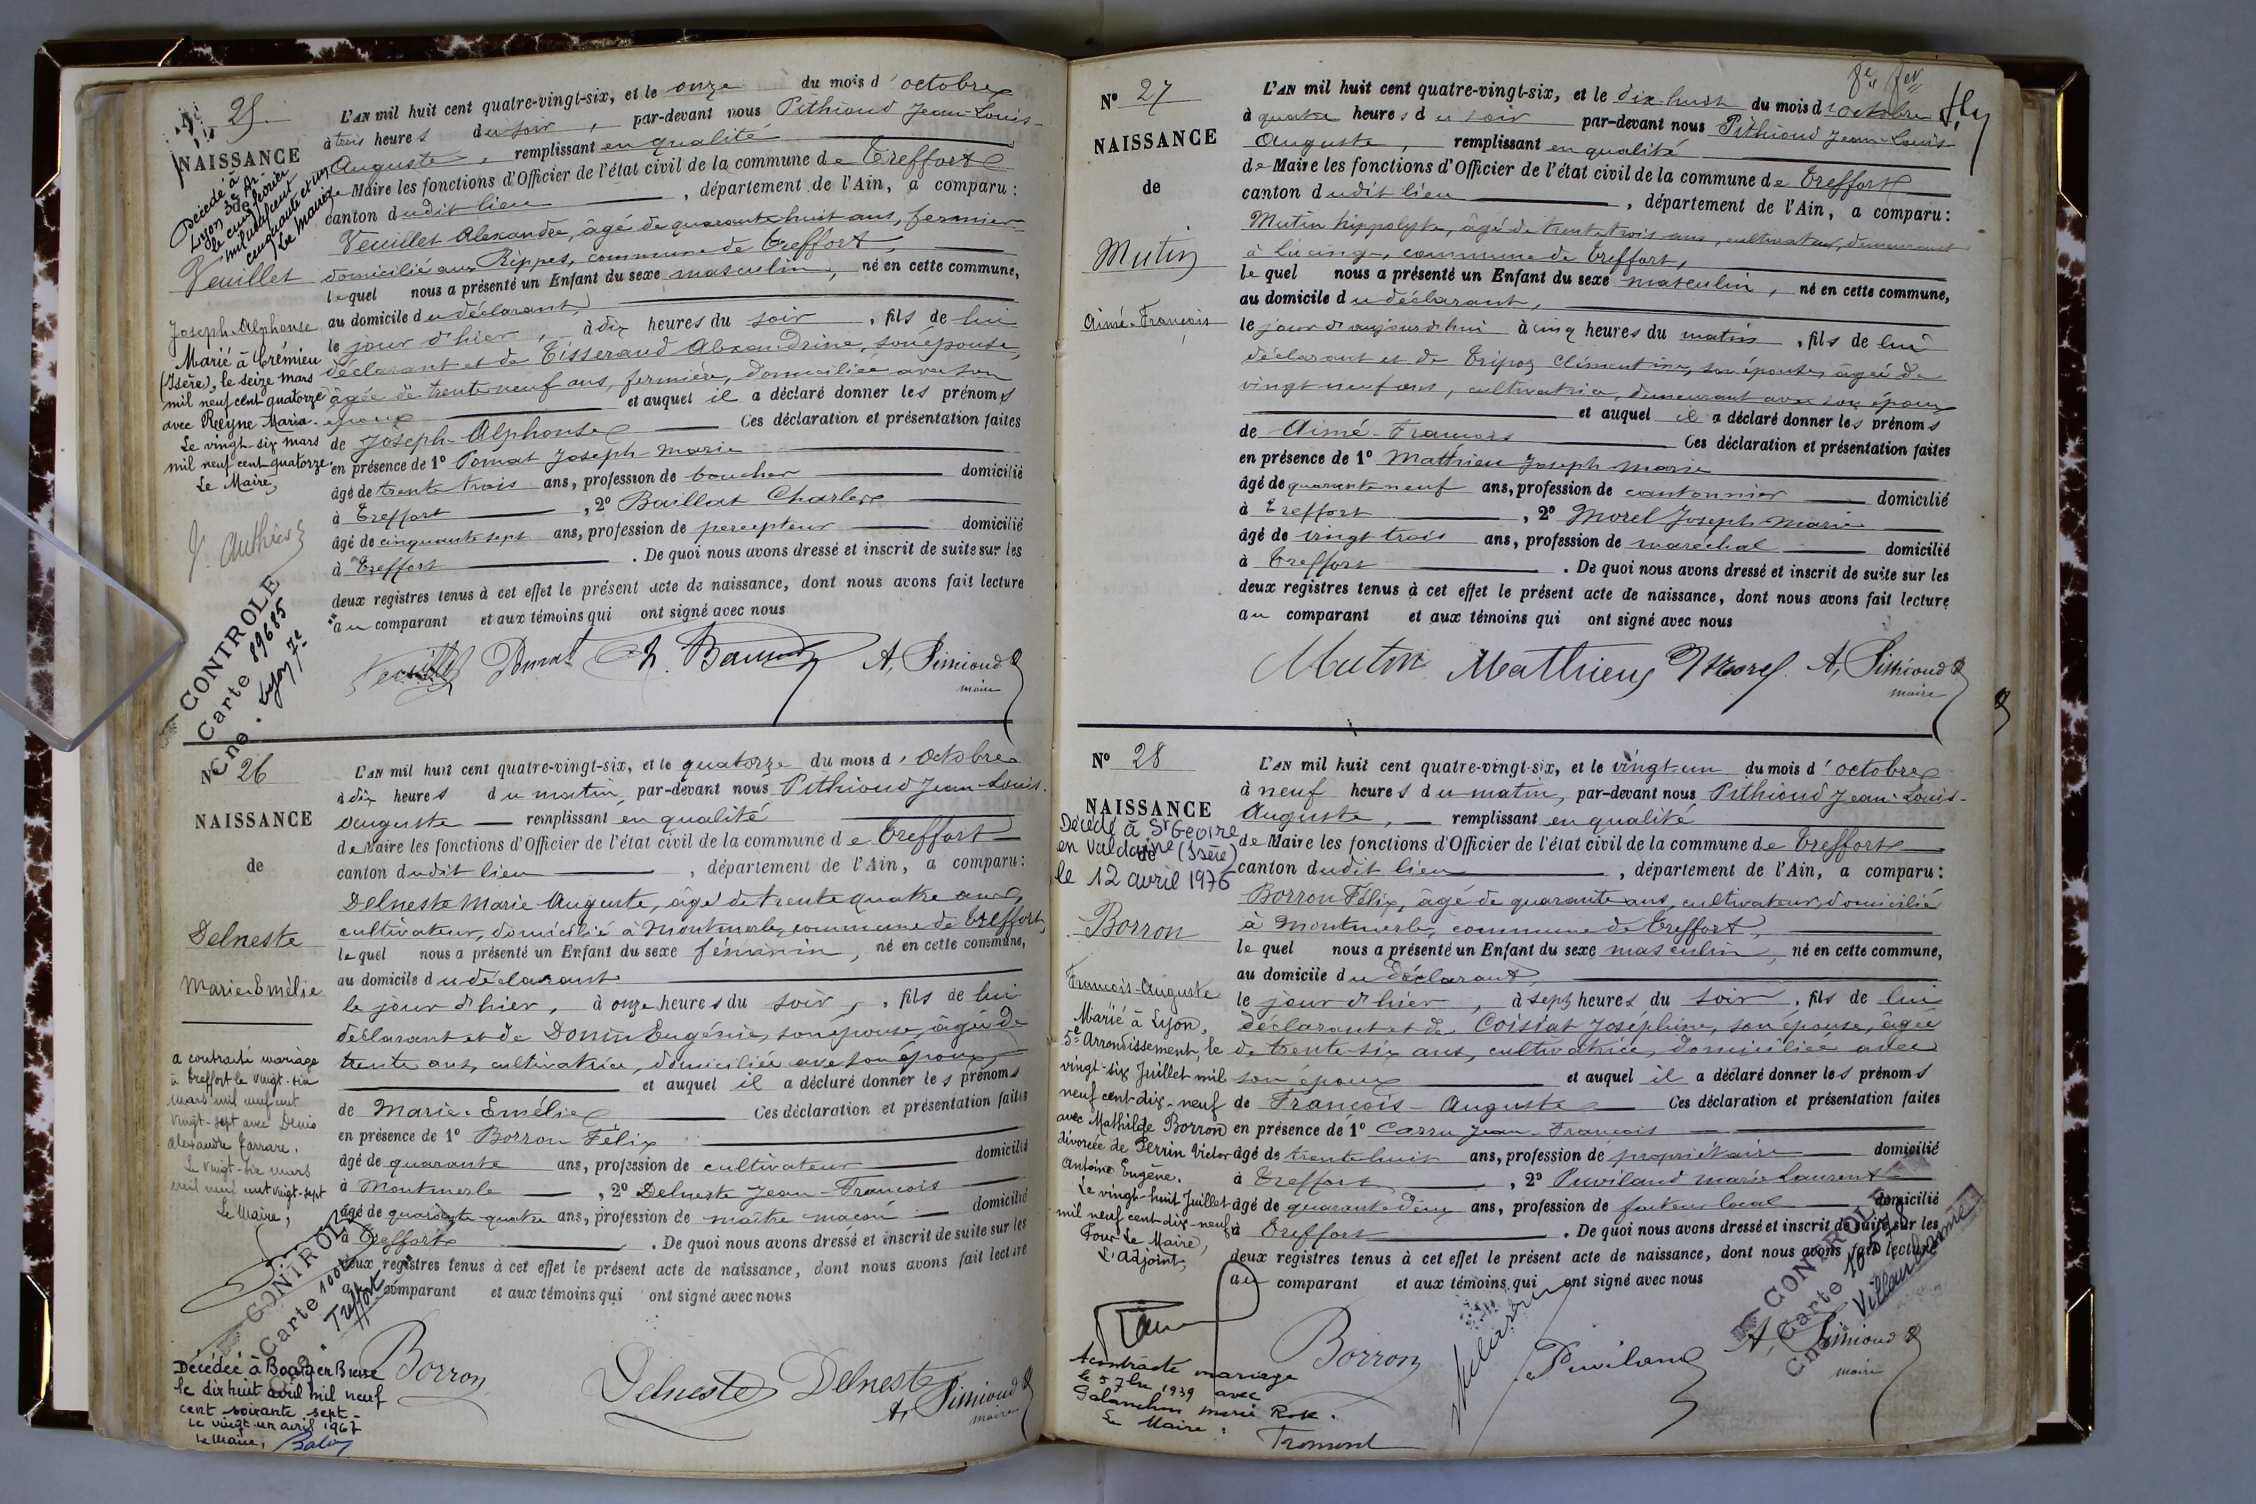 N° 25.
NAISSANCE
Décédé à
Lyon 3e Ar.
le cinq février
mil neuf cent
cinquante et un
Le Maire
Veuillet
Joseph-Alphonse
Marié à Crémieu
(Isère), le seize mars
mil neuf cent quatorze
avec Reyne Maria.
Le vingt-six mars
mil neuf cent quatorze.
Le Maire,
CONTROLE
Carte 89685
Cne. Lyon 7e
L'AN mil huit cent quatre-vingt-six, et le onze du mois d'octobre
à trois heures du soir, par-devant nous Pithioud Jean-Louis-
Auguste, remplissant en qualité
de Maire les fonctions d'Officier de l'état civil de la commune de Treffort
canton dudit lieu, département de l'Ain, a comparu:
Veuillet Alexandre, âgé de quarante huit ans, fermier
domicilié aux Rippes, commune de Treffort,
lequel nous a présenté un Enfant du sexe masculin, né en cette commune,
au domicile du déclarant,
le jour d'hier, à dix heures du soir, fils de lui
déclarant et de Tisserand Alexandrine, son épouse,
âgée de trente neuf ans, fermière, domiciliée avec son
époux et auquel il a déclaré donner les prénoms
de Joseph-Alphonse Ces déclaration et présentation faites
en présence de 1° Pomat Joseph-Marie
âgé de trente trois ans, profession de boucher domicilié
à Treffort, 2° Baillat Charles
âgé de cinquante sept ans, profession de percepteur domicilié
à Treffort. De quoi nous avons dressé et inscrit de suite sur les
deux registres tenus à cet effet le présent acte de naissance, dont nous avons fait lecture
au comparant et aux témoins qui ont signé avec nous
Veuillet Pomat A. Pithioud
maire
N° 26
NAISSANCE
de
Delneste
Marie-Emélie
a contracté mariage
à Treffort le vingt-six
mars mil neuf cent
vingt-sept avec Denis
Alexandre Farrare.
Le vingt-six mars
mil neuf cent vingt-sept
Le Maire,
CONTROLE
Carte
Treffort
Décédée à Bourg en Bresse
le dix huit avril mil neuf
cent soixante sept-
Le vingt-un avril 1967
Le Maire,
L'AN mil huit cent quatre-vingt-six, et le quatorze du mois d'Octobre
à dix heures du matin, par-devant nous Pithioud Jean-Louis-
Auguste remplissant en qualité
de Maire les fonctions d'Officier de l'état civil de la commune de Treffort
canton dudit lieu, département de l'Ain, a comparu:
Delneste Marie-Auguste, âgé de trente quatre ans,
cultivateur, domicilié à Montmerle, commune de Treffort,
lequel nous a présenté un Enfant du sexe féminin, né en cette commune,
au domicile du déclarant
le jour d'hier, à onze heures du soir, fils de lui
déclarant et de Donin Eugénie, son épouse, âgée de
trente ans, cultivatrice, domiciliée avec son époux,
et auquel il a déclaré donner les prénoms
de Marie-Emélie Ces déclaration et présentation faites
en présence de 1° Borron Félix
âgé de quarante ans, profession de cultivateur domicilié
à Montmerle, 2° Delneste Jean-François
âgé de quarante quatre ans, profession de maître maçon domicilié
à Treffort. De quoi nous avons dressé et inscrit de suite sur les
deux registres tenus à cet effet le présent acte de naissance, dont nous avons fait lecture
au comparant et aux témoins qui ont signé avec nous
Borron Delneste Delneste A. Pithioud
maire
N° 27
NAISSANCE
de
Mutin
Aimé-François
L'AN mil huit cent quatre-vingt-six, et le dix-huit du mois d'octobre
à quatre heures du soir par-devant nous Pithioud Jean-Louis-
Auguste, remplissant en qualité
de Maire les fonctions d'Officier de l'état civil de la commune de Treffort
canton dudit lieu, département de l'Ain, a comparu:
Mutin hippolyte, âgé de trente trois ans, cultivateur, demeurant
à Lucinge, commune de Treffort,
lequel nous a présenté un Enfant du sexe masculin, né en cette commune,
au domicile du déclarant,
le jour d'aujourd'hui à cinq heures du matin, fils de lui
déclarant et de Tripoz Clémentine, son épouse, âgée de
vingt neuf ans, cultivatrice, demeurant avec son époux
et auquel il a déclaré donner les prénoms
de Aimé-François Ces déclaration et présentation faites
en présence de 1° Matthieu Joseph-Marie
âgé de quarante neuf ans, profession de cantonnier domicilié
à Treffort, 2° Morel Joseph-Marie
âgé de vingt trois ans, profession de maréchal domicilié
à Treffort. De quoi nous avons dressé et inscrit de suite sur les
deux registres tenus à cet effet le présent acte de naissance, dont nous avons fait lecture
au comparant et aux témoins qui ont signé avec nous
Mutin Matthieu Morel A. Pithioud
maire
N° 28
NAISSANCE
de
Décédé à St Geoire
en Valdaine (Isère)
le 12 avril 1976
Borron
François-Auguste
Marié à Lyon,
5e Arrondissement, le
vingt-six Juillet mil
neuf cent-dix-neuf
avec Mathilde Borron
divorcée de Perrin Victor
Antoine Eugène.
Le vingt-huit Juillet
mil neuf cent-dix-neuf
Pour Le Maire,
L'Adjoint,
A contracté mariage
le 5 7bre 1939 avec
Galanchon Marie Rose.
Le Maire:
Tromont
L'AN mil huit cent quatre-vingt-six, et le vingt-un du mois d'octobre
à neuf heures du matin, par-devant nous Pithioud Jean-Louis-
Auguste, remplissant en qualité
de Maire les fonctions d'Officier de l'état civil de la commune de Treffort
canton dudit lieu, département de l'Ain, a comparu:
Borron Félix, âgé de quarante ans, cultivateur, domicilié
à Montmerle, commune de Treffort,
lequel nous a présenté un Enfant du sexe masculin, né en cette commune,
au domicile du Déclarant,
le jour d'hier, à sept heures du soir, fils de lui
déclarant et de Coisiat Joséphine, son épouse, âgée
de trente-six ans, cultivatrice, domiciliée avec
son époux et auquel il a déclaré donner les prénoms
de François-Auguste Ces déclaration et présentation faites
en présence de 1° Carru Jean-François
âgé de trente huit ans, profession de propriétaire domicilié
à Treffort, 2° Puviland Marie-Laurent
âgé de quarante deux ans, profession de facteur local domicilié
à Treffort. De quoi nous avons dressé et inscrit de suite sur les
deux registres tenus à cet effet le présent acte de naissance, dont nous avons fait lecture
au comparant et aux témoins qui ont signé avec nous
Borron Puviland A. Pithioud
maire
CONTROLE
Carte
Cne Villeurbanne